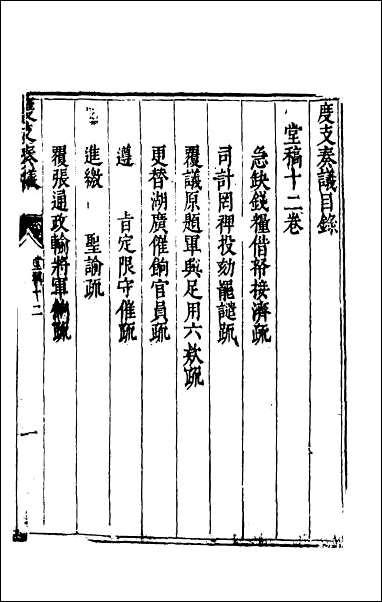 度支奏議目錄
堂稿十二卷
急缺錢糧借帑接濟疏
司計罔裨投劾罷譴疏
覆議原題軍與足用六欵疏
更替湖廣催餉官員疏
遵 旨定限守催疏
進繳 聖諭疏
覆張通政輸將軍餉疏
度支奏議
堂稿十二
一